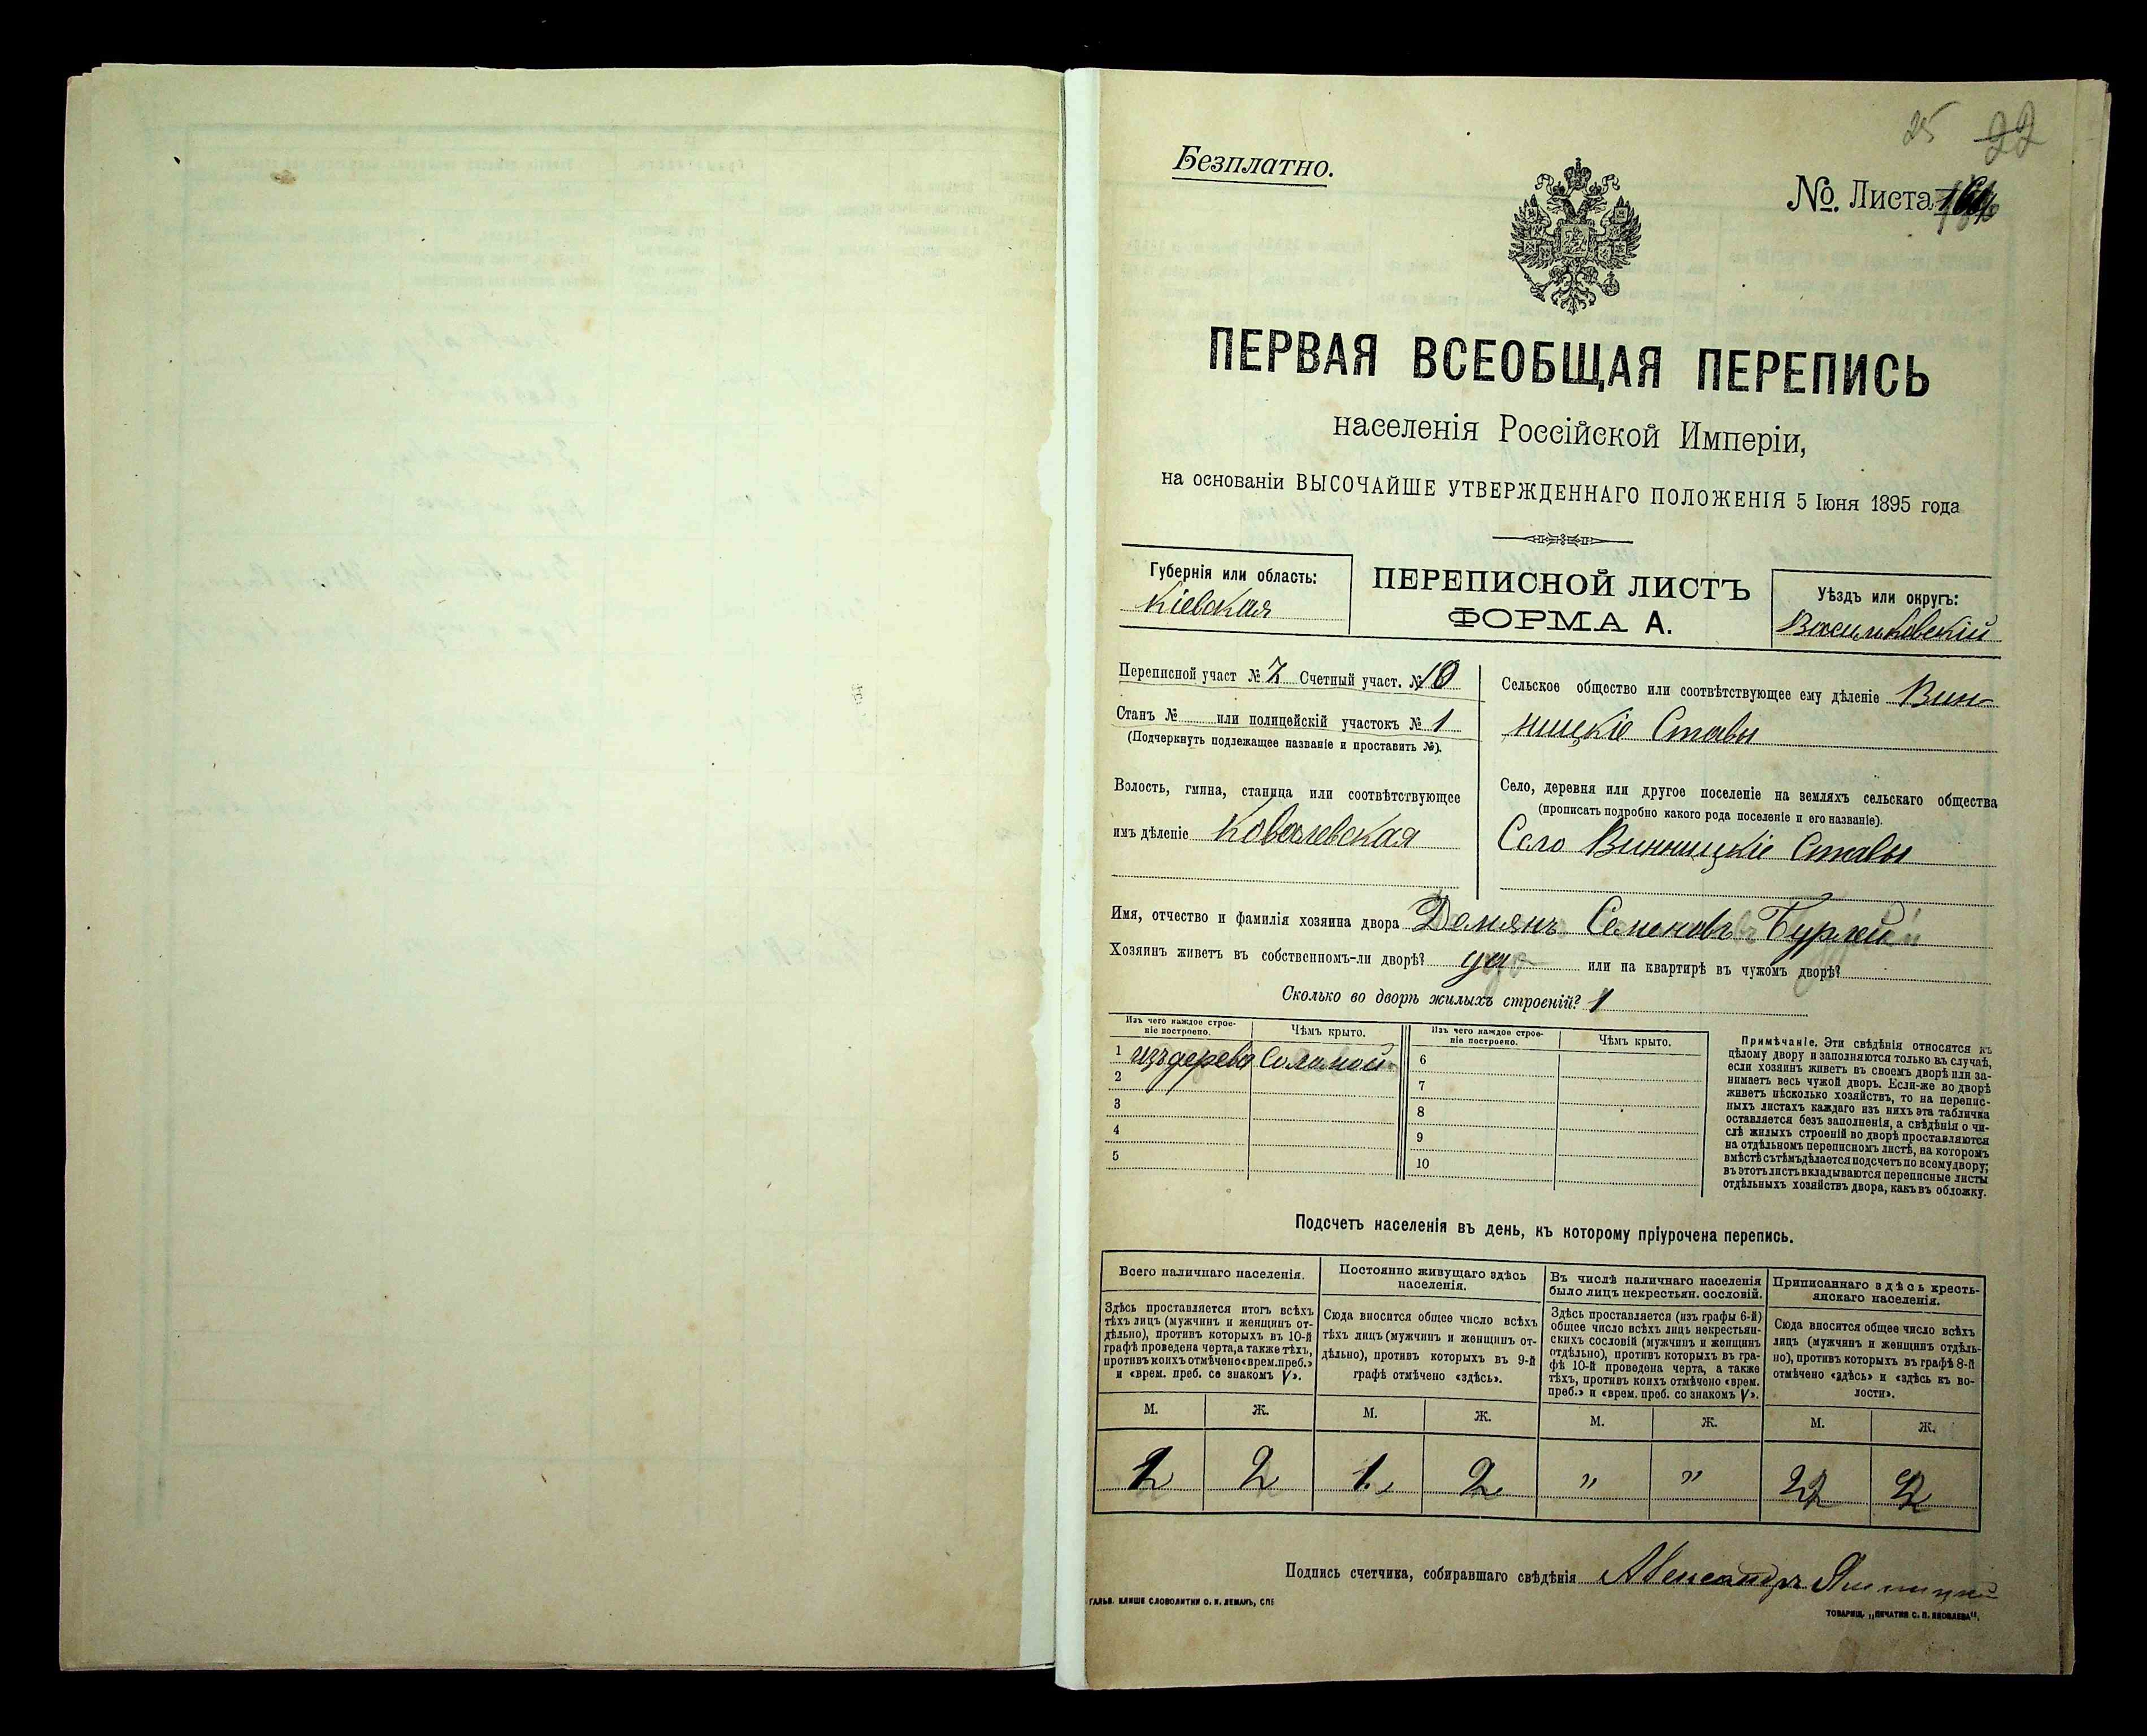 25 22
Безплатно.
№. Листа
ПЕРВАЯ ВСЕОБЩАЯ ПЕРЕПИСЬ
населенія Россійской Имперіи,
на основаніи ВЫСОЧАЙШЕ УТВЕРЖДЕННАГО ПОЛОЖЕНІЯ 5 Іюня 1895 года
Губернія или область:
Кіевская
ПЕРЕПИСНОЙ ЛИСТЪ
ФОРМА А.
Уѣздъ или округъ:
Васильковскій
Переписной участ № 7 Счетный участ. № 10
Станъ № или полицейскій участокъ № 1
(Подчеркнуть подлежащее названіе и проставить №).
Волость, гмина, станица или соотвѣтствующее
имъ дѣленіе Ковалевская
Сельское общество или соотвѣтствующее ему дѣленіе Вин-
ницкіе Ставы
Село, деревня или другое поселеніе на земляхъ сельскаго общества
(прописать подробно какого рода поселеніе и его названіе).
Село Винницкіе Ставы
Имя, отчество и фамилія хозяина двора Демянъ Семеновъ
Хозяинъ живетъ въ собственномъ-ли дворѣ? да или на квартирѣ въ чужомъ дворѣ?
Сколько во дворѣ жилыхъ строеній? 1
Изъ чего каждое строе-
ніе построено.
Чѣмъ крыто.
Изъ чего каждое строе-
ніе построено.
Чѣмъ крыто.
1 изъ дерева Соломой 6
2 7
3 8
4 9
5 10
Примѣчаніе. Эти свѣдѣнія относятся къ
цѣлому двору и заполняются только въ случаѣ,
если хозяинъ живетъ въ своемъ дворѣ или за-
нимаетъ весь чужой дворъ. Если-же во дворѣ
живетъ нѣсколько хозяйствъ, то на перепис-
ныхъ листахъ каждаго изъ нихъ эта табличка
оставляется безъ заполненія, а свѣдѣнія о чи-
слѣ жилыхъ строеній во дворѣ проставляются
на отдѣльномъ переписномъ листѣ, на которомъ
вмѣстѣ съ тѣмъ дѣлается подсчетъ по всему двору;
въ этотъ листъ вкладываются переписные листы
отдѣльныхъ хозяйствъ двора, какъ въ обложку.
Подсчетъ населенія въ день, къ которому пріурочена перепись.
Всего наличнаго населенія.
Здѣсь проставляется итогъ всѣхъ
тѣхъ лицъ (мужчинъ и женщинъ от-
дѣльно), противъ которыхъ въ 10-й
графѣ проведена черта, а также тѣхъ,
противъ коихъ отмѣчено «врем. преб.»
и «врем. преб. со знакомъ V».
Постоянно живущаго здѣсь
населенія.
Сюда вносится общее число всѣхъ
тѣхъ лицъ (мужчинъ и женщинъ от-
дѣльно), противъ которыхъ въ 9-й
графѣ отмѣчено «здѣсь».
Въ числѣ наличнаго населенія
было лицъ некрестьян. сословій.
Здѣсь проставляется (изъ графы 6-й)
общее число всѣхъ лицъ некрестьян-
скихъ сословій (мужчинъ и женщинъ
отдѣльно), противъ которыхъ въ гра-
фѣ 10-й проведена черта, а также
тѣхъ, противъ коихъ отмѣчено «врем.
преб.» и «врем. преб. со знакомъ V».
Приписаннаго здѣсь кресть-
янскаго населенія.
Сюда вносится общее число всѣхъ
лицъ (мужчинъ и женщинъ отдѣль-
но), противъ которыхъ въ графѣ 8-й
отмѣчено «здѣсь» и «здѣсь къ во-
лости».
М. Ж. М. Ж. М. Ж. М. Ж.
1 2 1 2 " " 2 2
Подпись счетчика, собиравшаго свѣдѣнія Александръ
ГАЛЬВ. КЛИШЕ СЛОВОЛИТНИ О. И. ЛЕМАНЪ, СПБ
ТОВАРИЩ. „ПЕЧАТНЯ С. П. ЯКОВЛЕВА".